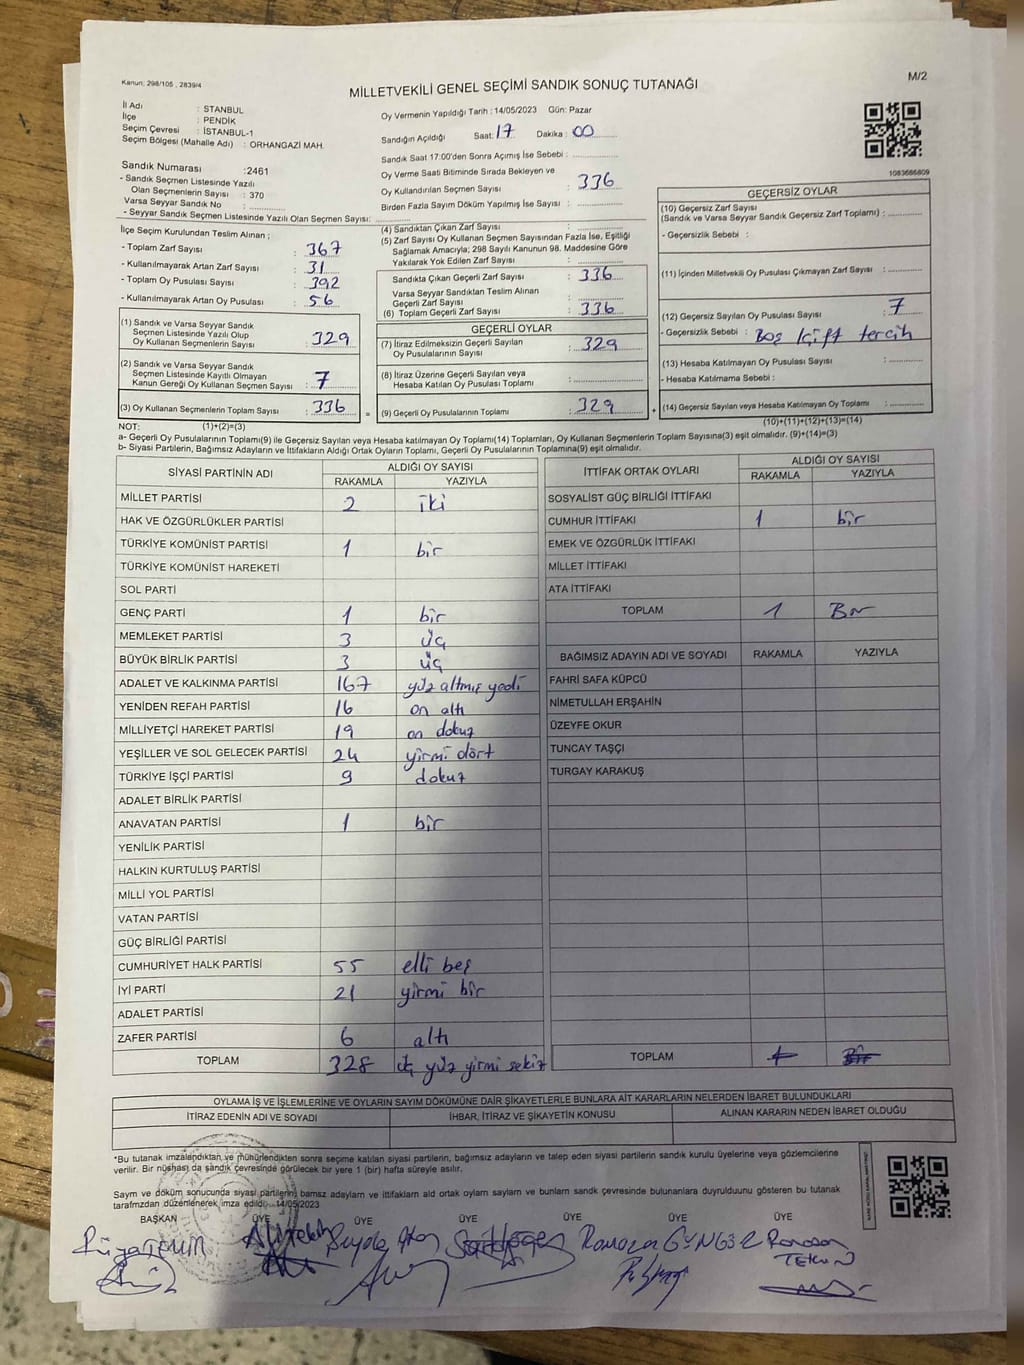 Kanun: 298/105 , 2839/4
MİLLETVEKİLİ GENEL SEÇİMİ SANDIK SONUÇ TUTANAĞI
M/2
İl Adı : STANBUL
İlçe : PENDİK
Seçim Çevresi : İSTANBUL-1
Seçim Bölgesi (Mahalle Adı) : ORHANGAZİ MAH.
Oy Vermenin Yapıldığı Tarih : 14/05/2023 Gün: Pazar
Sandığın Açıldığı Saat: 17 Dakika : 00
Sandık Saat 17:00'den Sonra Açımış İse Sebebi :
Oy Verme Saati Bitiminde Sırada Bekleyen ve
Oy Kullandırılan Seçmen Sayısı : 336
Birden Fazla Sayım Döküm Yapılmış İse Sayısı :
1083686809
Sandık Numarası :2461
- Sandık Seçmen Listesinde Yazılı
Olan Seçmenlerin Sayısı : 370
Varsa Seyyar Sandık No :
- Seyyar Sandık Seçmen Listesinde Yazılı Olan Seçmen Sayısı:
İlçe Seçim Kurulundan Teslim Alınan ;
- Toplam Zarf Sayısı : 367
- Kullanılmayarak Artan Zarf Sayısı : 31
- Toplam Oy Pusulası Sayısı : 392
- Kullanılmayarak Artan Oy Pusulası : 56
(1) Sandık ve Varsa Seyyar Sandık
Seçmen Listesinde Yazılı Olup
Oy Kullanan Seçmenlerin Sayısı : 329
(2) Sandık ve Varsa Seyyar Sandık
Seçmen Listesinde Kayıtlı Olmayan
Kanun Gereği Oy Kullanan Seçmen Sayısı : 7
(3) Oy Kullanan Seçmenlerin Toplam Sayısı : 336
(4) Sandıktan Çıkan Zarf Sayısı :
(5) Zarf Sayısı Oy Kullanan Seçmen Sayısından Fazla İse, Eşitliği
Sağlamak Amacıyla; 298 Sayılı Kanunun 98. Maddesine Göre
Yakılarak Yok Edilen Zarf Sayısı :
Sandıkta Çıkan Geçerli Zarf Sayısı : 336
Varsa Seyyar Sandıktan Teslim Alınan
Geçerli Zarf Sayısı :
(6) Toplam Geçerli Zarf Sayısı : 336
GEÇERLİ OYLAR
(7) İtiraz Edilmeksizin Geçerli Sayılan
Oy Pusulalarının Sayısı : 329
(8) İtiraz Üzerine Geçerli Sayılan veya
Hesaba Katılan Oy Pusulası Toplamı :
= (9) Geçerli Oy Pusulalarının Toplamı : 329
GEÇERSİZ OYLAR
(10) Geçersiz Zarf Sayısı
(Sandık ve Varsa Seyyar Sandık Geçersiz Zarf Toplamı) :
- Geçersizlik Sebebi :
(11) İçinden Milletvekili Oy Pusulası Çıkmayan Zarf Sayısı :
(12) Geçersiz Sayılan Oy Pusulası Sayısı : 7
- Geçersizlik Sebebi : Boş / çift tercih
(13) Hesaba Katılmayan Oy Pusulası Sayısı :
- Hesaba Katılmama Sebebi :
+ (14) Geçersiz Sayılan veya Hesaba Katılmayan Oy Toplamı :
NOT: (1)+(2)=(3)
(10)+(11)+(12)+(13)=(14)
a- Geçerli Oy Pusulalarının Toplamı(9) ile Geçersiz Sayılan veya Hesaba katılmayan Oy Toplamı(14) Toplamları, Oy Kullanan Seçmenlerin Toplam Sayısına(3) eşit olmalıdır. (9)+(14)=(3)
b- Siyasi Partilerin, Bağımsız Adayların ve İttifakların Aldığı Ortak Oyların Toplamı, Geçerli Oy Pusulalarının Toplamına(9) eşit olmalıdır.
SİYASİ PARTİNİN ADI ALDIĞI OY SAYISI
RAKAMLA YAZIYLA
MİLLET PARTİSİ 2 iki
HAK VE ÖZGÜRLÜKLER PARTİSİ
TÜRKİYE KOMÜNİST PARTİSİ 1 bir
TÜRKİYE KOMÜNİST HAREKETİ
SOL PARTİ
GENÇ PARTİ 1 bir
MEMLEKET PARTİSİ 3 üç
BÜYÜK BİRLİK PARTİSİ 3 üç
ADALET VE KALKINMA PARTİSİ 167 yüz altmış yedi
YENİDEN REFAH PARTİSİ 16 on altı
MİLLİYETÇİ HAREKET PARTİSİ 19 on dokuz
YEŞİLLER VE SOL GELECEK PARTİSİ 24 yirmi dört
TÜRKİYE İŞÇİ PARTİSİ 9 dokuz
ADALET BİRLİK PARTİSİ
ANAVATAN PARTİSİ 1 bir
YENİLİK PARTİSİ
HALKIN KURTULUŞ PARTİSİ
MİLLİ YOL PARTİSİ
VATAN PARTİSİ
GÜÇ BİRLİĞİ PARTİSİ
CUMHURİYET HALK PARTİSİ 55 elli beş
İYİ PARTİ 21 yirmi bir
ADALET PARTİSİ
ZAFER PARTİSİ 6 altı
TOPLAM 328 üç yüz yirmi sekiz
İTTİFAK ORTAK OYLARI ALDIĞI OY SAYISI
RAKAMLA YAZIYLA
SOSYALİST GÜÇ BİRLİĞİ İTTİFAKI
CUMHUR İTTİFAKI 1 bir
EMEK VE ÖZGÜRLÜK İTTİFAKI
MİLLET İTTİFAKI
ATA İTTİFAKI
TOPLAM 1 Bir
BAĞIMSIZ ADAYIN ADI VE SOYADI RAKAMLA YAZIYLA
FAHRİ SAFA KÜPCÜ
NİMETULLAH ERŞAHİN
ÜZEYFE OKUR
TUNCAY TAŞÇI
TURGAY KARAKUŞ
TOPLAM 1 Bir
OYLAMA İŞ VE İŞLEMLERİNE VE OYLARIN SAYIM DÖKÜMÜNE DAİR ŞİKAYETLERLE BUNLARA AİT KARARLARIN NELERDEN İBARET BULUNDUKLARI
İTİRAZ EDENİN ADI VE SOYADI İHBAR, İTİRAZ VE ŞİKAYETİN KONUSU ALINAN KARARIN NEDEN İBARET OLDUĞU
*Bu tutanak imzalandıktan ve mühürlendikten sonra seçime katılan siyasi partilerin, bağımsız adayların ve talep eden siyasi partilerin sandık kurulu üyelerine veya gözlemcilerine
verilir. Bir nüshası da sandık çevresinde görülecek bir yere 1 (bir) hafta süreyle asılır.
Sayım ve döküm sonucunda siyasi partilerin, bamsz adayların ve ittifakların ald ortak oyların sayların ve bunların sandk çevresinde bulunanlara duyrulduunu gösteren bu tutanak
tarafmzdan düzenlenerek imza edildi. 14/05/2023
BAŞKAN ÜYE ÜYE ÜYE ÜYE ÜYE ÜYE
Ramazan GÜNGÖR Ramazan
TEKİN